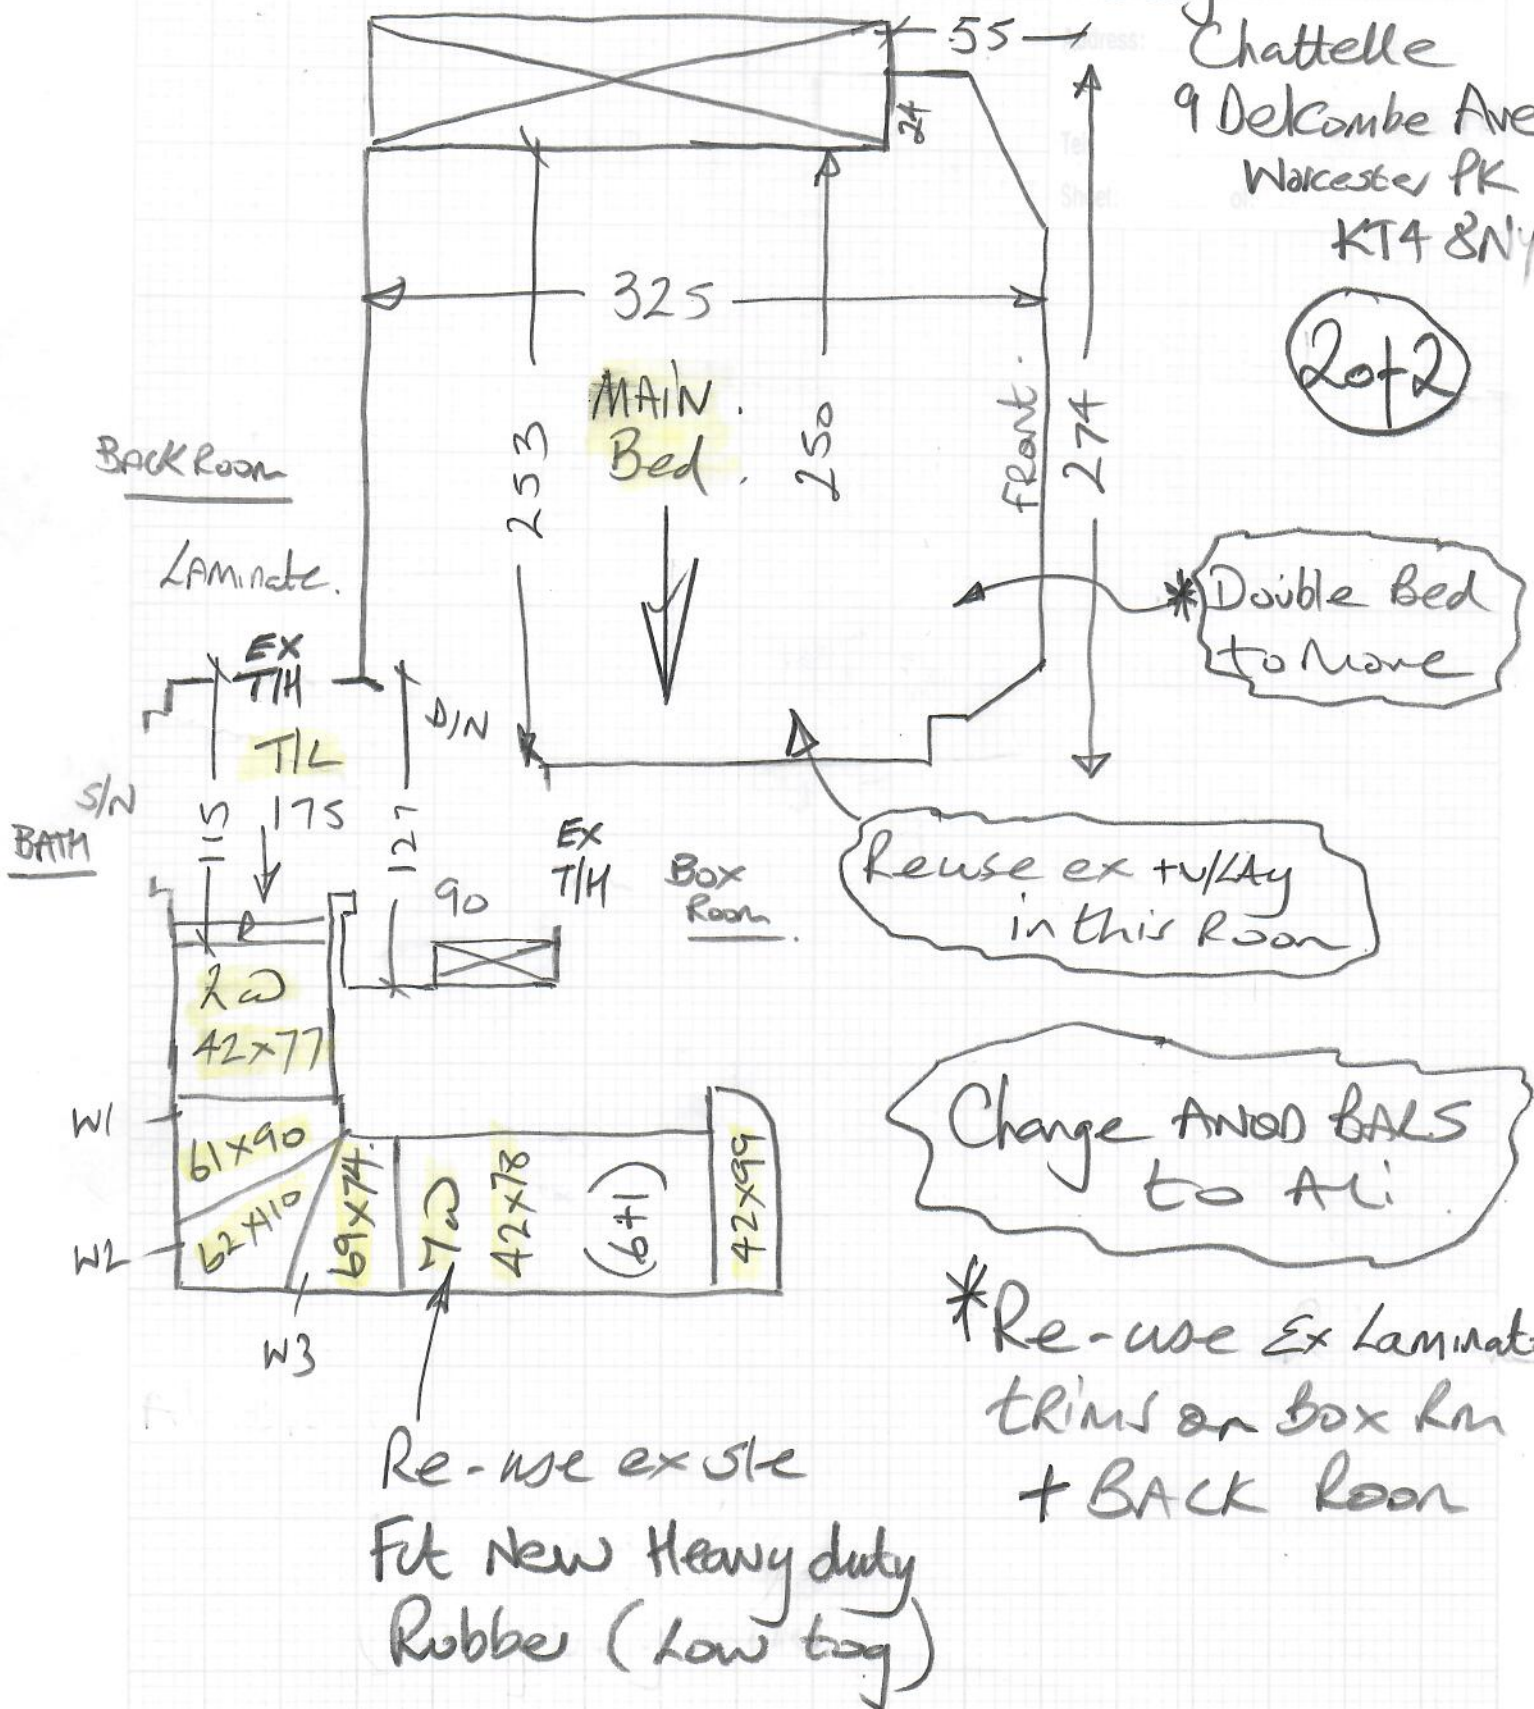 55
Address:
Chattelle
9 Delcombe Ave
Worcester PK
KT4 8NY
Sheet: of:
24
2 of 2
325
MAIN.
Bed.
253
250
FRONT.
274
BACK ROOM
LAMINATE.
* Double Bed
to Move
EX
T/H
T/L
175
115
D/N
127
S/N
BATH
EX
T/H
90
BOX
Room.
Reuse ex +U/LAY
in this Room
R
2W
42x77
W1
61x90
W2
62x110
W3
69x74
7W
42x78
(6+1)
42x99
Change ANOD BARS
to Ali
* Re-use Ex Laminate
trims on Box Rm
+ BACK Room
Re-use ex
Fit New Heavy duty
Rubber (Low tog)